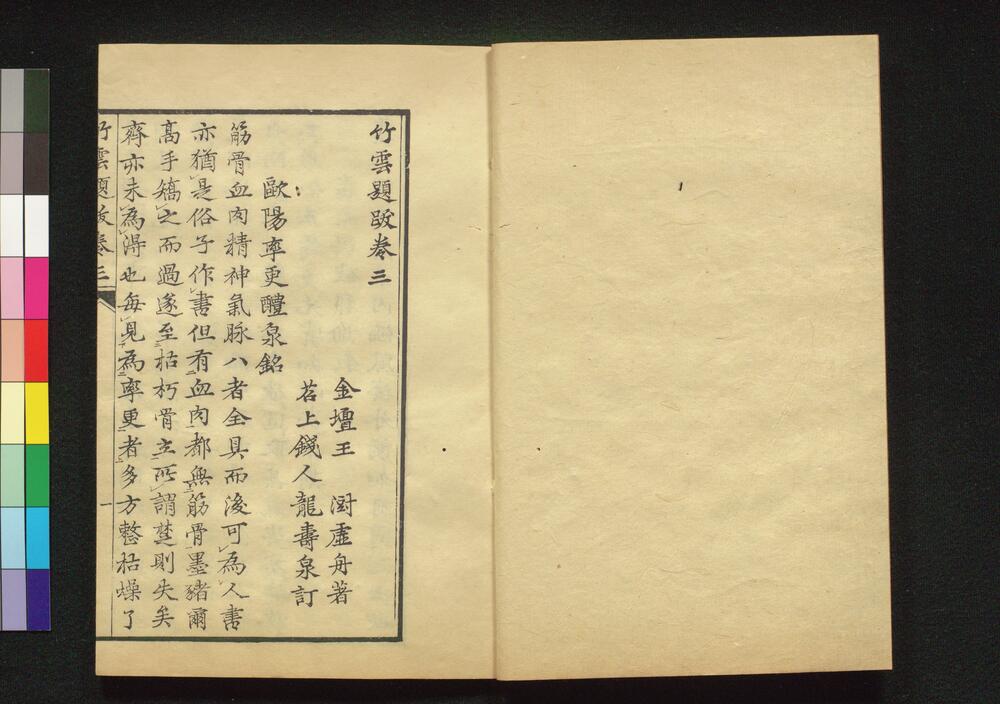 竹雲題跋卷三
金壇王 澍虛舟著
苕上錢人龍壽泉訂
歐陽率更醴泉銘
筋骨血肉精神氣脉八者全具而後可為人書
亦猶是俗子作書但有血肉都無筋骨墨豬爾
高手矯之而過遂至枯朽骨立所謂楚則失矣
齊亦未為得也每見為率更者多方整枯燥了
竹雲題跋卷三
一